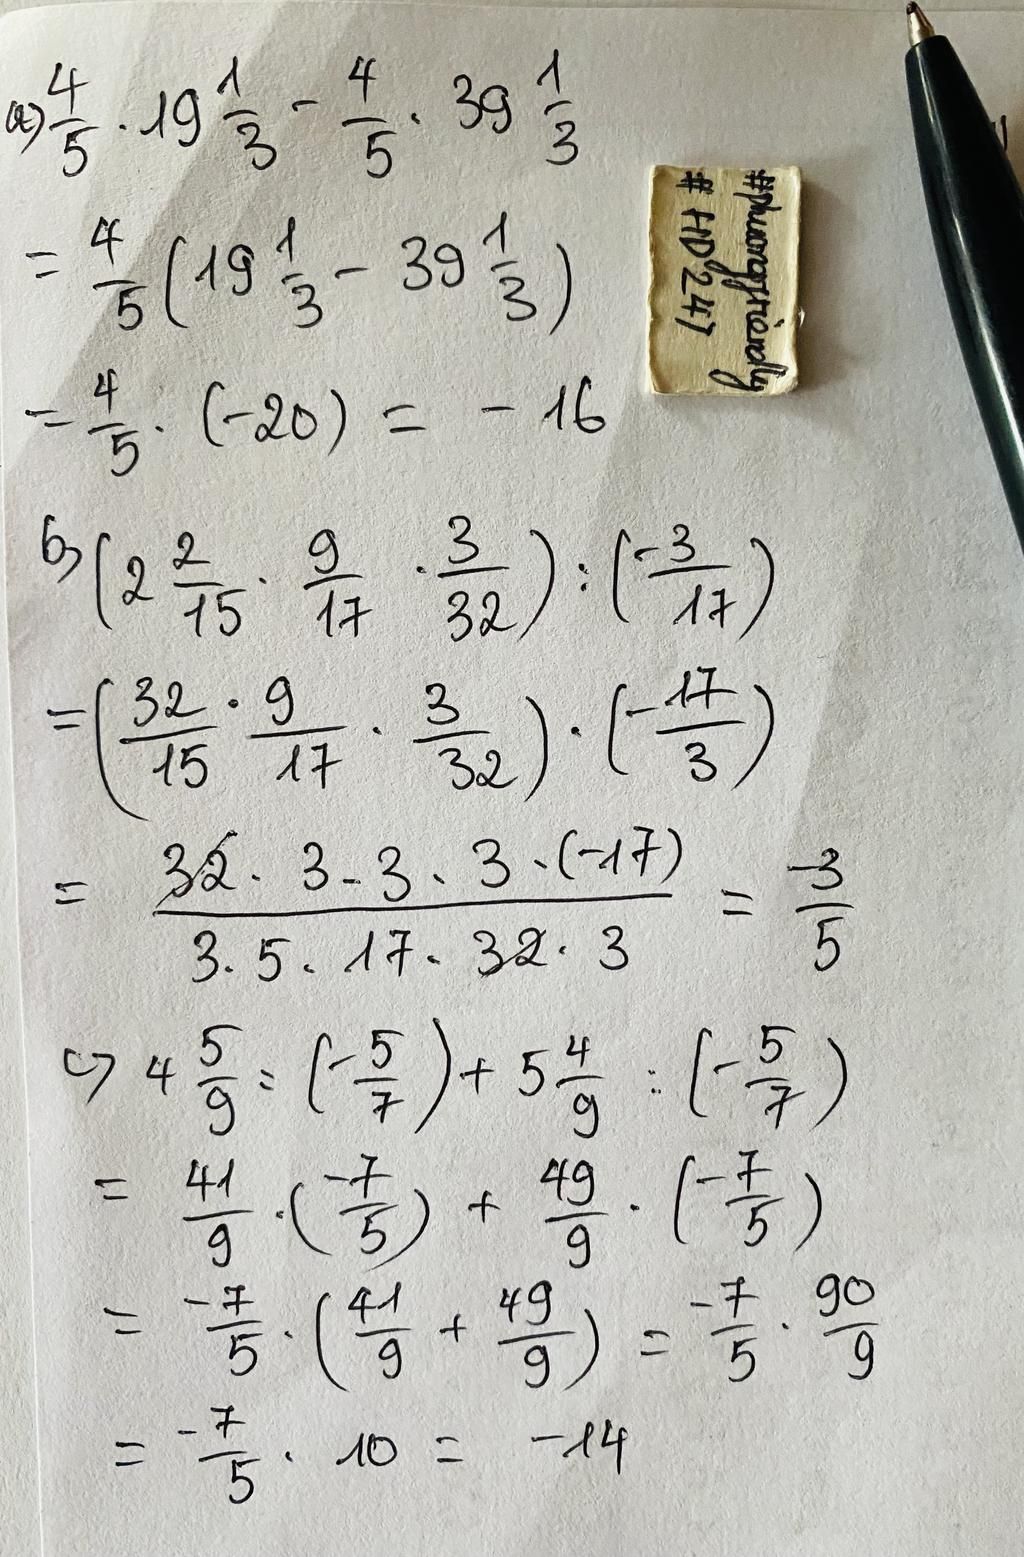 a) 4/5 . 19 1/3 - 4/5 . 39 1/3
= 4/5 (19 1/3 - 39 1/3)
= 4/5 . (-20) = -16
#phuongfriendly
# HD247
b) (2 2/15 . 9/17 . 3/32) : (-3/17)
= (32/15 . 9/17 . 3/32) . (-17/3)
= 32 . 3 . 3 . 3 . (-17) / 3 . 5 . 17 . 32 . 3 = -3/5
c) 4 5/9 : (-5/7) + 5 4/9 : (-5/7)
= 41/9 . (-7/5) + 49/9 . (-7/5)
= -7/5 . (41/9 + 49/9) = -7/5 . 90/9
= -7/5 . 10 = -14